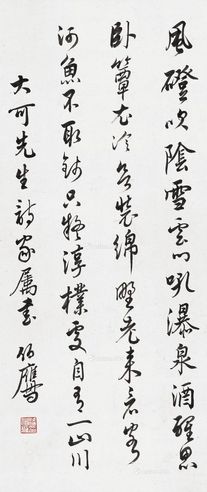 風磴吹陰雪雲門吼瀑泉酒醒思
臥簟衣冷欲裝綿野老來看客
河魚不取錢只疑淳樸處自有一山川
大可先生詩家屬書 伯鷹